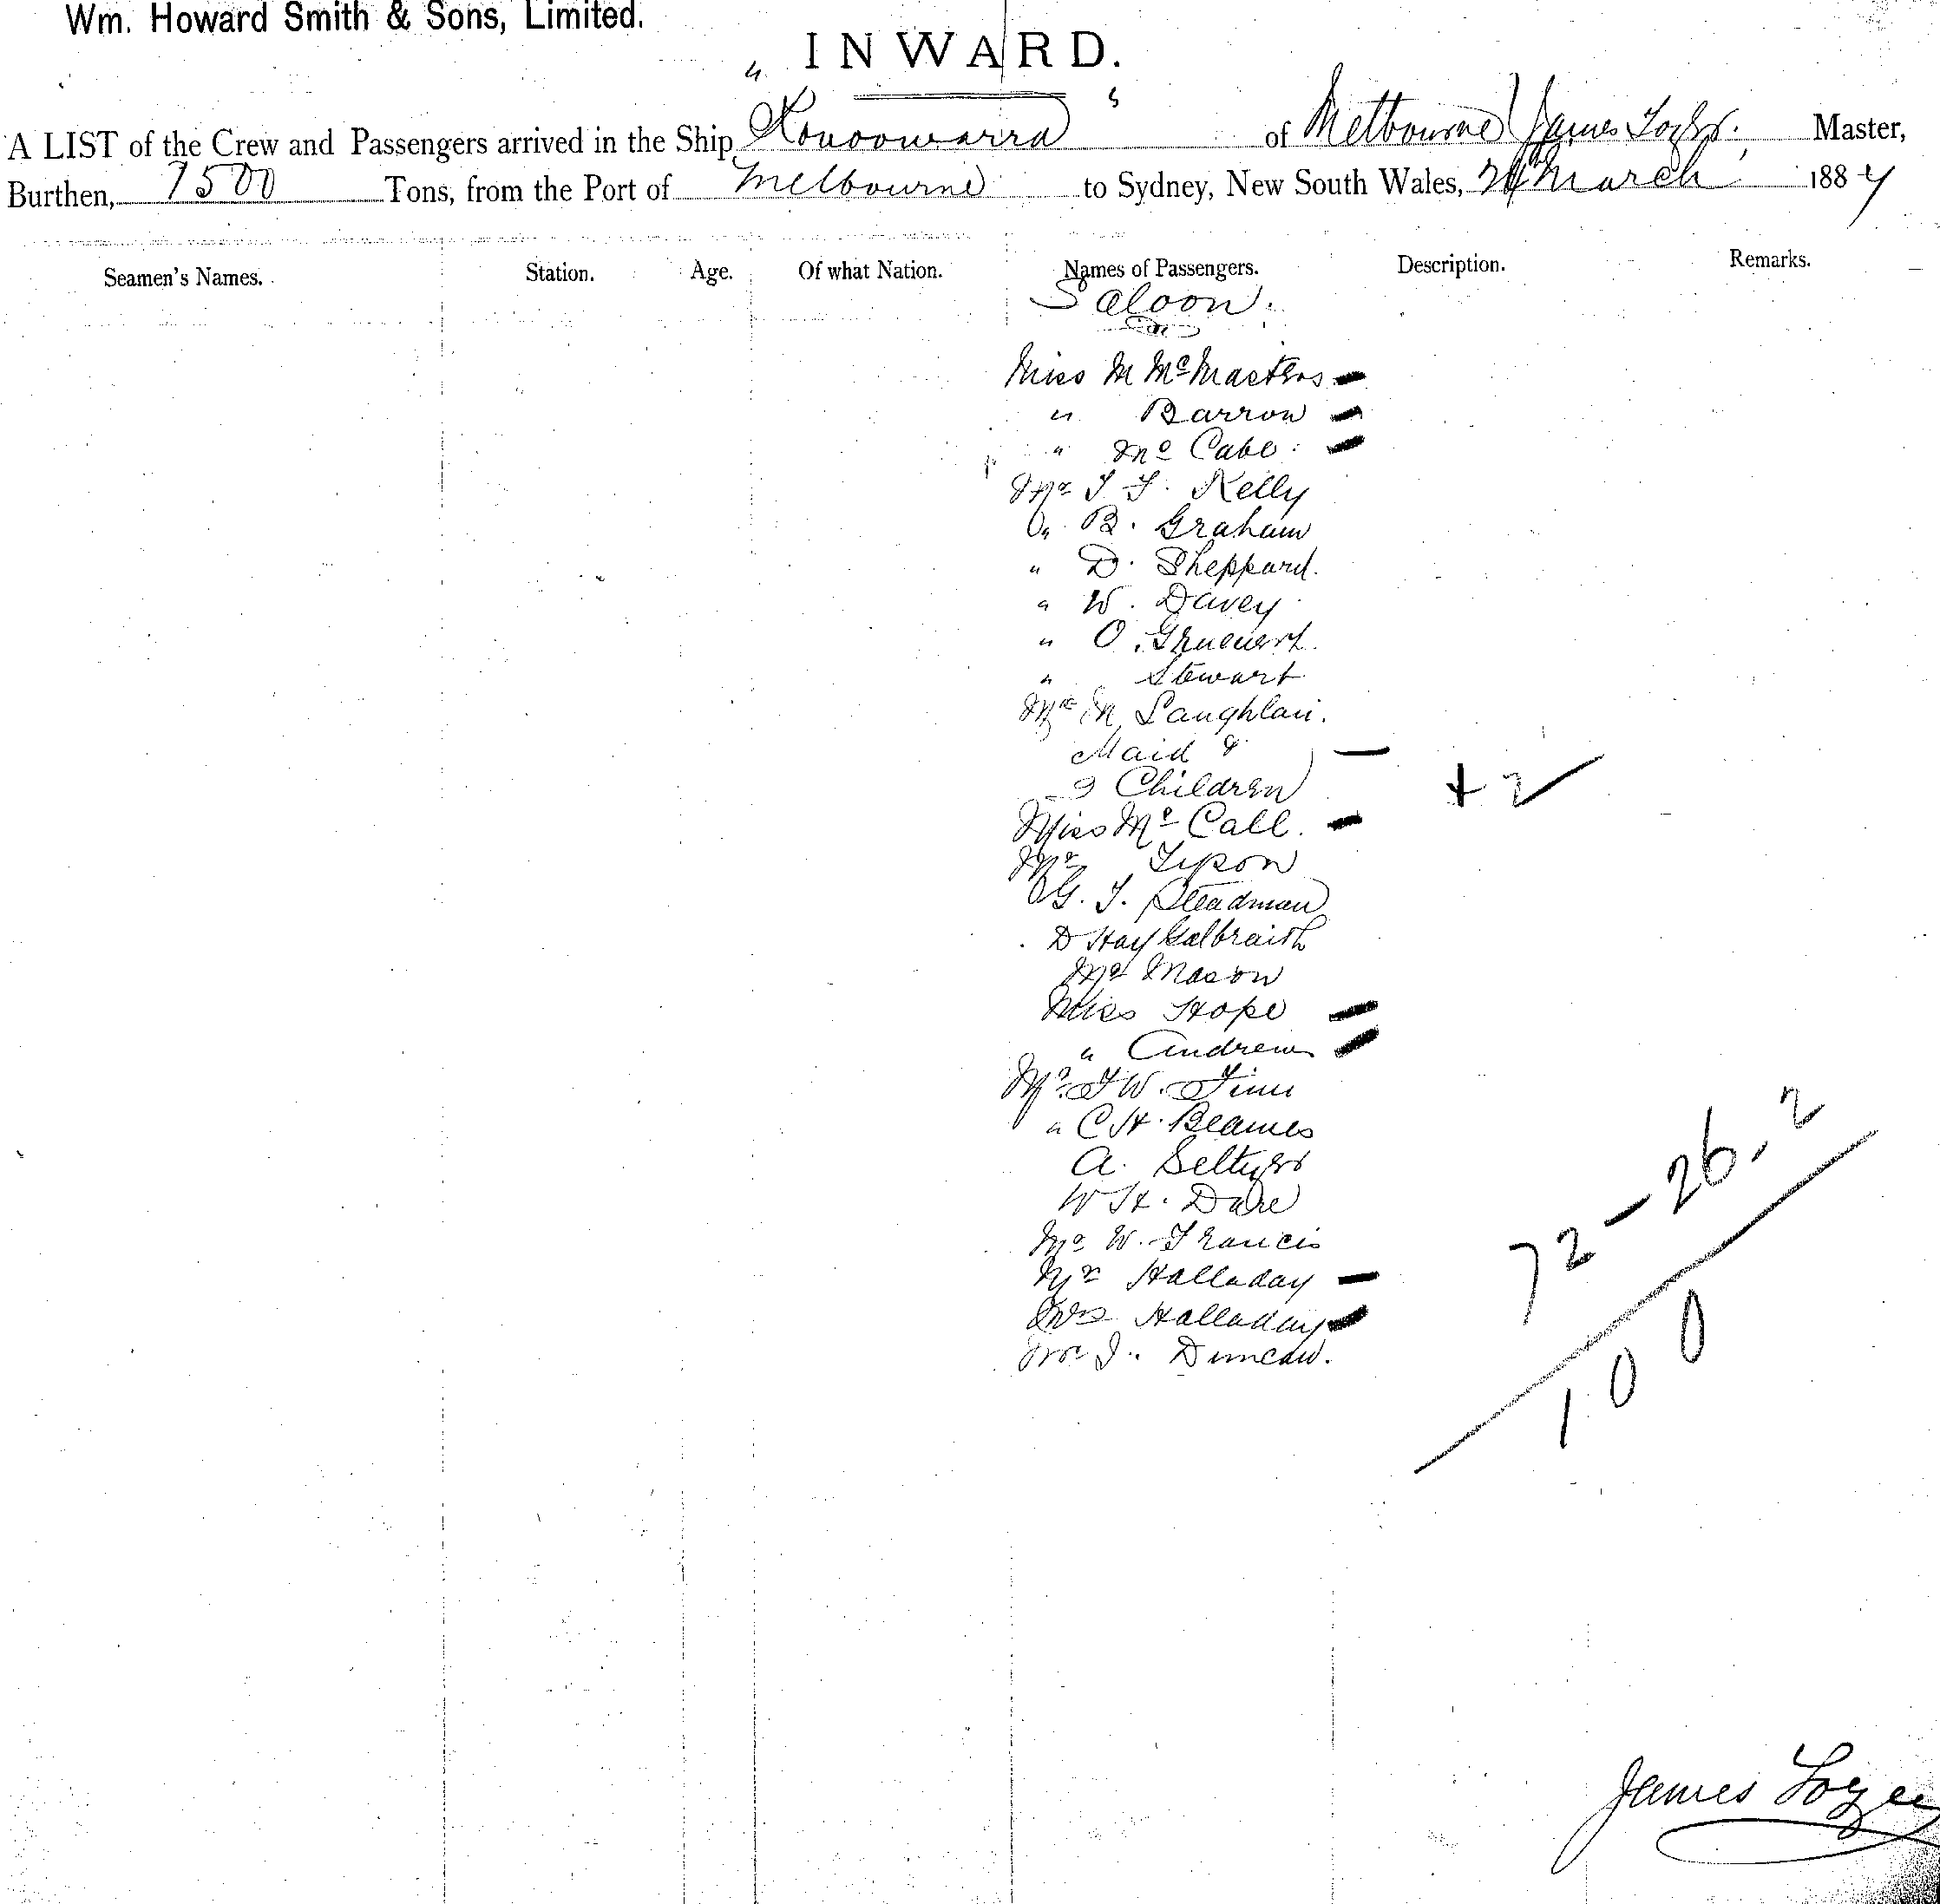 Wm. Howard Smith & Sons, Limited.
INWARD.
A LIST of the Crew and Passengers arrived in the Ship "Konoowarra" of Melbourne James Master,
Burthen, 1500 Tons, from the Port of Melbourne to Sydney, New South Wales, March 188
Seamen's Names. Station. Age. Of what Nation. Names of Passengers. Description. Remarks.
Saloon.
Miss M McMasters
" Barron
" Mc Cabe
Mr Kelly
" B. Graham
" D. Sheppard.
" W. Davey
" O.
" Stewart
Laughlan.
Maid &
Children
+ 2
Miss Mc Call.
Mr
G. Steadman
D Hay Galbraith
Mr Mason
Miss Hope
" Andrew
Mr W.
" C H. Beames
A.
W H. Dare
Mr W. Francis
Mr Halladay
Mrs Halladay
Mr J. Duncan.
72 - 26. 2
100
James